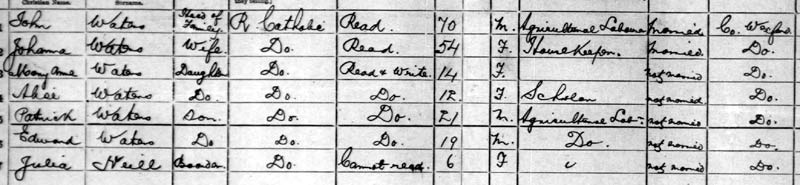 Christian Name. Surname.
1 John Waters Head of Family R Catholic Read. 70 M. Agricultural Laborer Married Co. Wexford
2 Johanna Waters Wife. Do. Read. 54 F. House Keeper. Married Do.
3 Mary Anne Waters Daughter Do. Read & Write. 14 F. not married Do.
4 Alice Waters Do. Do. Do. 12 F. Scholar not married Do.
5 Patrick Waters Son. Do. Do. 21 M. Agricultural Lab- not married Do.
Edward Waters Do Do. Do. 19 M. Do. not married Do.
7 Julia Neill Boarder. Do. Cannot read. 6 F not married Do.